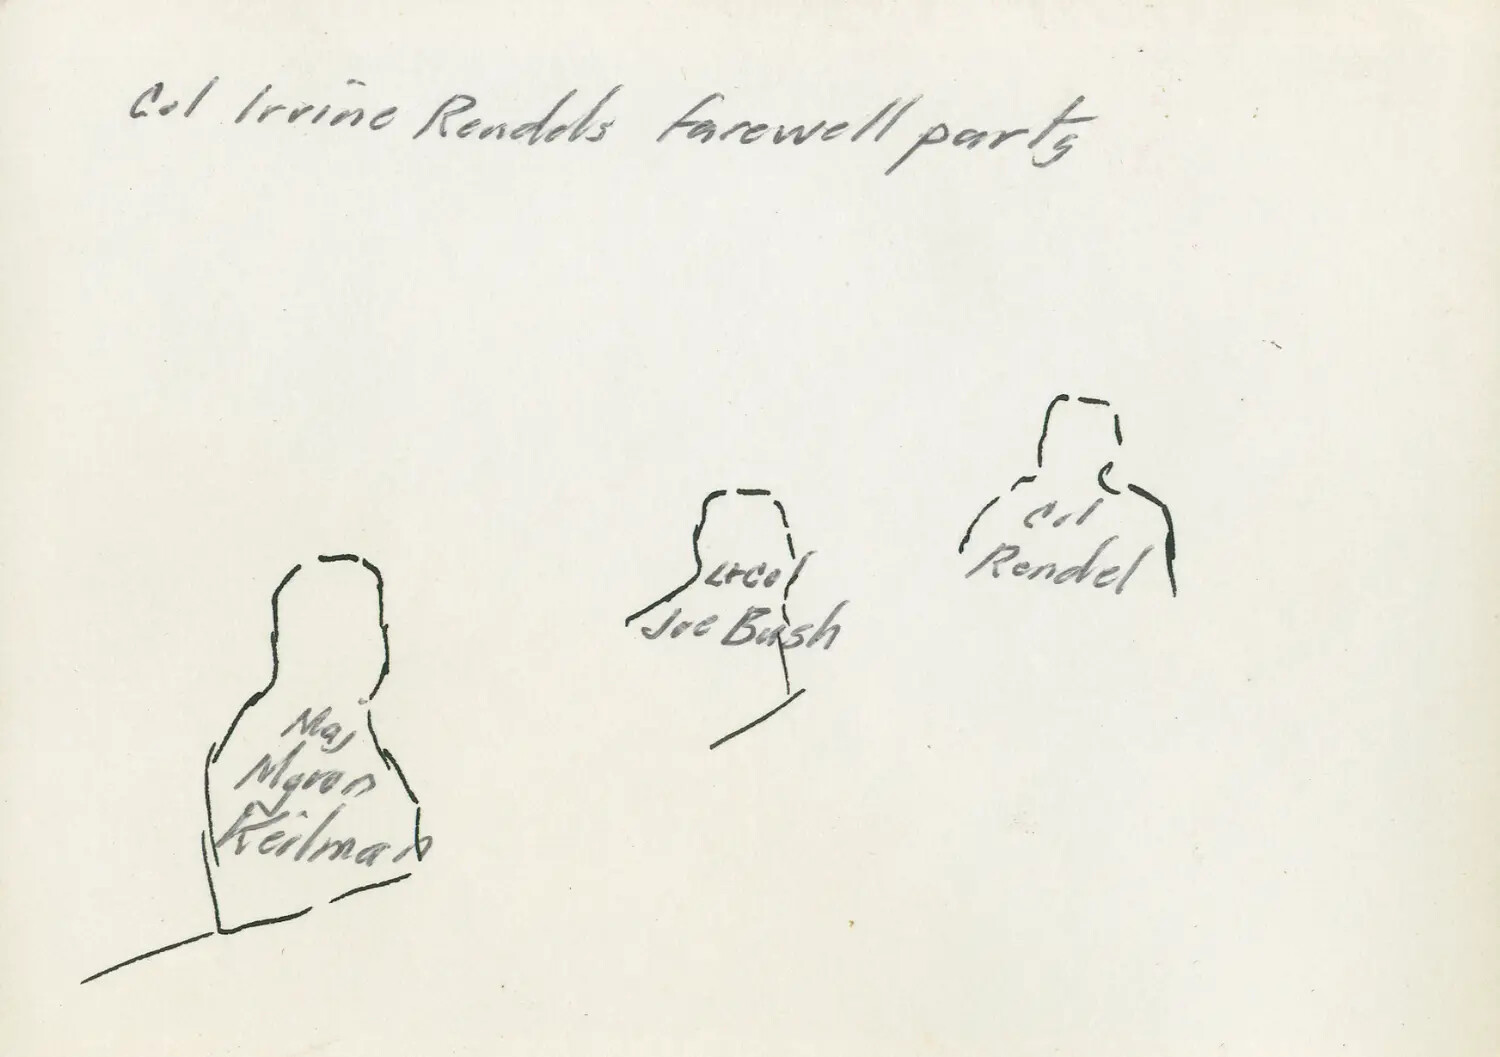 Col Irvine Rendels farewell party
Col
Rendel
Lt Col
Joe Bush
Maj
Myron
Keilman